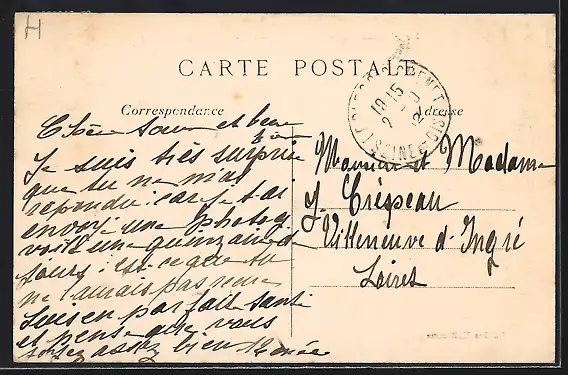 H
CARTE POSTALE
Correspondance
Adresse
Chère sœur et beau
frère
Je suis très surprise
que tu ne m'as
répondu : car je t'ai
envoyé une photog
voilà une quinzaine de
jours : est ce que tu
ne l'aurais pas reçue
Suis en parfaite santé
et pense que vous
soyez assez bien
Monsieur et Madame
J. Crépeau
Villeneuve d'Ingré
Loiret
19 15
2 - 9
12